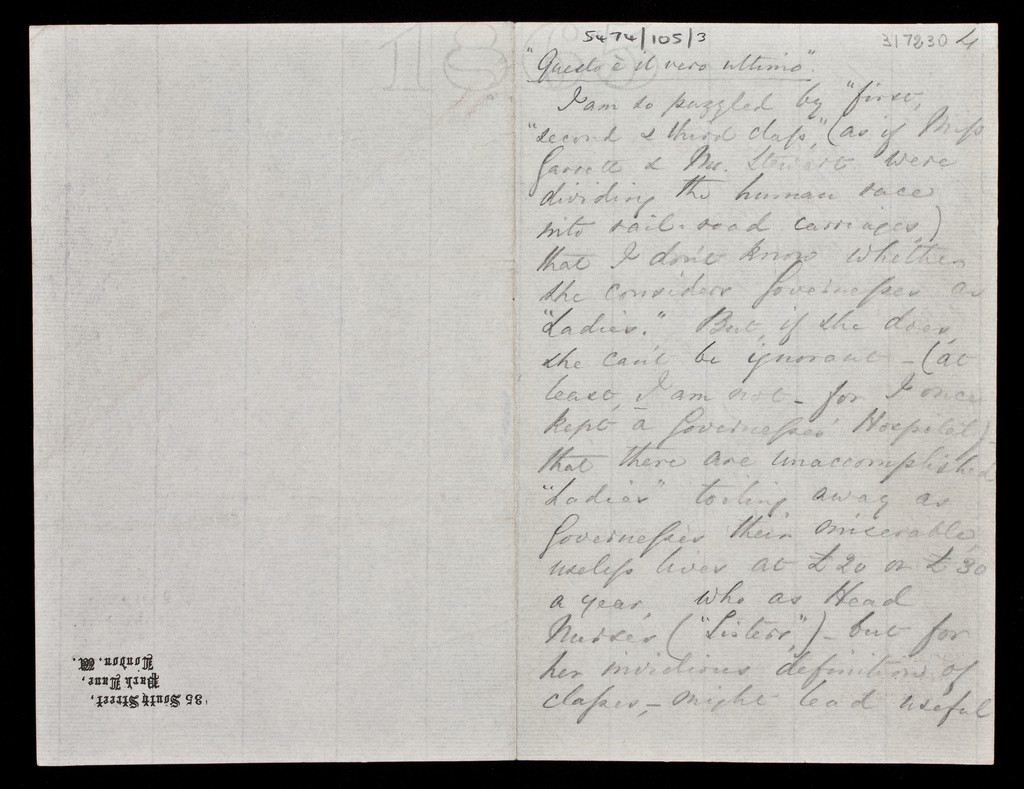 5474/105/3
317230 4
"Questo è il vero ultimo".
I am so puzzled by "first,
"second & third class", (as if Miss
Garrett & Mr. Stewart were
dividing the human race
into rail-road carriages)
that I don't know whether
she considers Governesses as
"Ladies." But, if she does,
she can't be ignorant - (at
least, I am not - for I once
kept a Governesses' Hospital) -
that there are unaccomplished
"Ladies" toiling away as
Governesses their miserable,
useless lives at £20 or £30
a year, who as Head
Nurses ("Sisters") - but for
her invidious definition of
classes, - might lead useful
35 South Street,
Park Lane,
London. W.